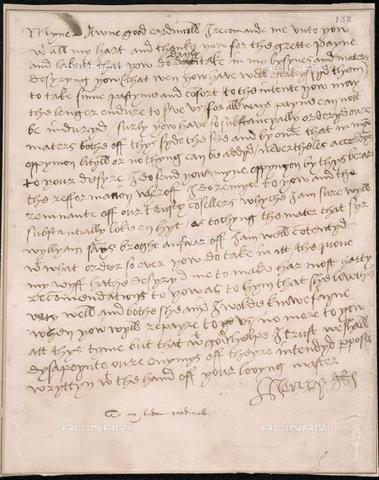 138
Myne Awne good cardinall I recomande me unto yow
w all my hart and thanke yow for the grette payne
and labour that yow do dayly take in my bysynes and maters
desyryng yow (that wen yow have well establyshyd them)
to take summe pastyme and comfort to the intente yow may
the lenger endure to serve us for allways payne can nott
be induryd surly yow have so substancyally orderyd oure
maters bothe off thys syde the see and byonde that in myne
oppynion lityll or no thyng can be addyd nevertheles accordyng
to your desyre I do send yow myne oppynyon by thys berar
the refformation weroff I do remytte to yow and the
remnante off our trusty consellers whyche I am sure wyll
substantially loke on hytt as tochyng the mater that syr
wylliam says broght answar off I am well contentyd
w what order so ever yow do take in itt the quene
my wyff hathe desyryd me to make har most harty
recommendations to yow as to hym that she lovethe
very well and bothe she and I wolde knowe fayne
when yow wyll repayre to us no more to yow
att thys tyme but that w gods helpe I trust we shall
dysapoynte oure enymys off theyre intendyd pposse
wryttyn w the hand off your lovyng master
Henry R
To my lorde cardinall
ALINARI
ALINARI